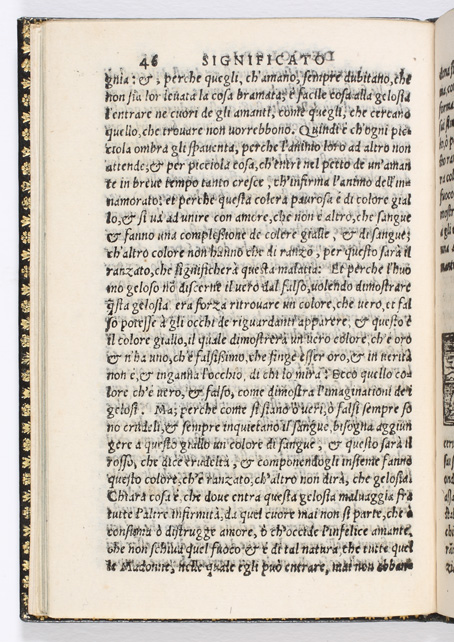 46 SIGNIFICATO
gnia: &, perche quegli, ch'amano, sempre dubitano, che
non sia lor leuata la cosa bramata; è facile cosa alla gelosia
l'entrare ne cuori de gli amanti, come quegli, che cercano
quello, che trouare non uorrebbono. Quindi è ch'ogni pic
ciola ombra gli spauenta, perche l'animo loro ad altro non
attende; & per picciola cosa, ch'entri nel petto de un'aman
te in breue tempo tanto cresce, ch'infirma l'animo dell'in=
namorato: et perche questa colera paurosa è di colore gial
lo; & si uà ad unire con amore, che non è altro, che sangue
& fanno una complessione de colere gialle, & di sangue;
ch'altro colore non hanno che di ranzo, per questo sarà il
ranzato, che significherà questa malatia: Et perche l'huo
mo geloso nō discerne il uero dal falso, uolendo dimostrare
q̄sta gelosia era forza ritrouare un colore, che uero, et fal
so potesse à gli occhi de riguardanti apparere, & questo è
il colore giallo, il quale dimostrerà un uero colore, ch'è oro
& n'ha uno, ch'è falsissimo, che finge esser oro, & in uerità
non è, & inganna l'occhio, di chi lo mira: Ecco quello co=
lore ch'è uero, & falso, come dimostra l'imaginationi de i
gelosi. Ma; perche come si siano ò ueri, ò falsi sempre so
no crudeli, & sempre inquietano il sangue, bisogna aggiun
gere a questo giallo un colore di sangue, & questo sarà il
rosso, che dice crudeltà, & componendogli insieme fanno
questo colore, ch'è ranzato, ch'altro non dirà, che gelosia.
Chiara cosa è, che doue entra questa gelosia maluaggia fra
tutte l'altre infirmità, da quel cuore mai non si parte, che ò
consuma ò distrugge amore, ò ch'occide l'infelice amante,
che non schiua quel fuoco & è di tal natura che tutte quel
le Madonne, nelle quale egli può entrare, mai non